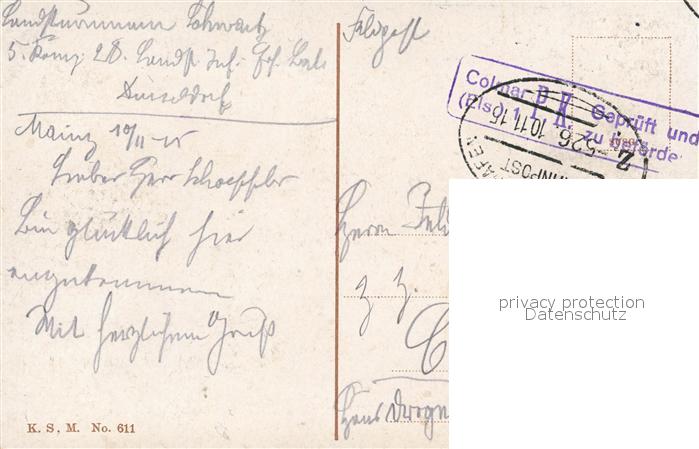 Landsturmmann Schwartz
5. Komp 28. Landst. Inf. Ers. Batl.
Düsseldorf
Mainz 10/11 15
Lieber Herr
Bin glücklich hier
angekommen
Mit herzlichem Gruß
K. S. M. No. 611
Feldpost
Colmar Geprüft und
(Els) zu beförde
526 10.11.15
Z.
Herrn Fel
z. Z.
C
Haus
privacy protection
Datenschutz